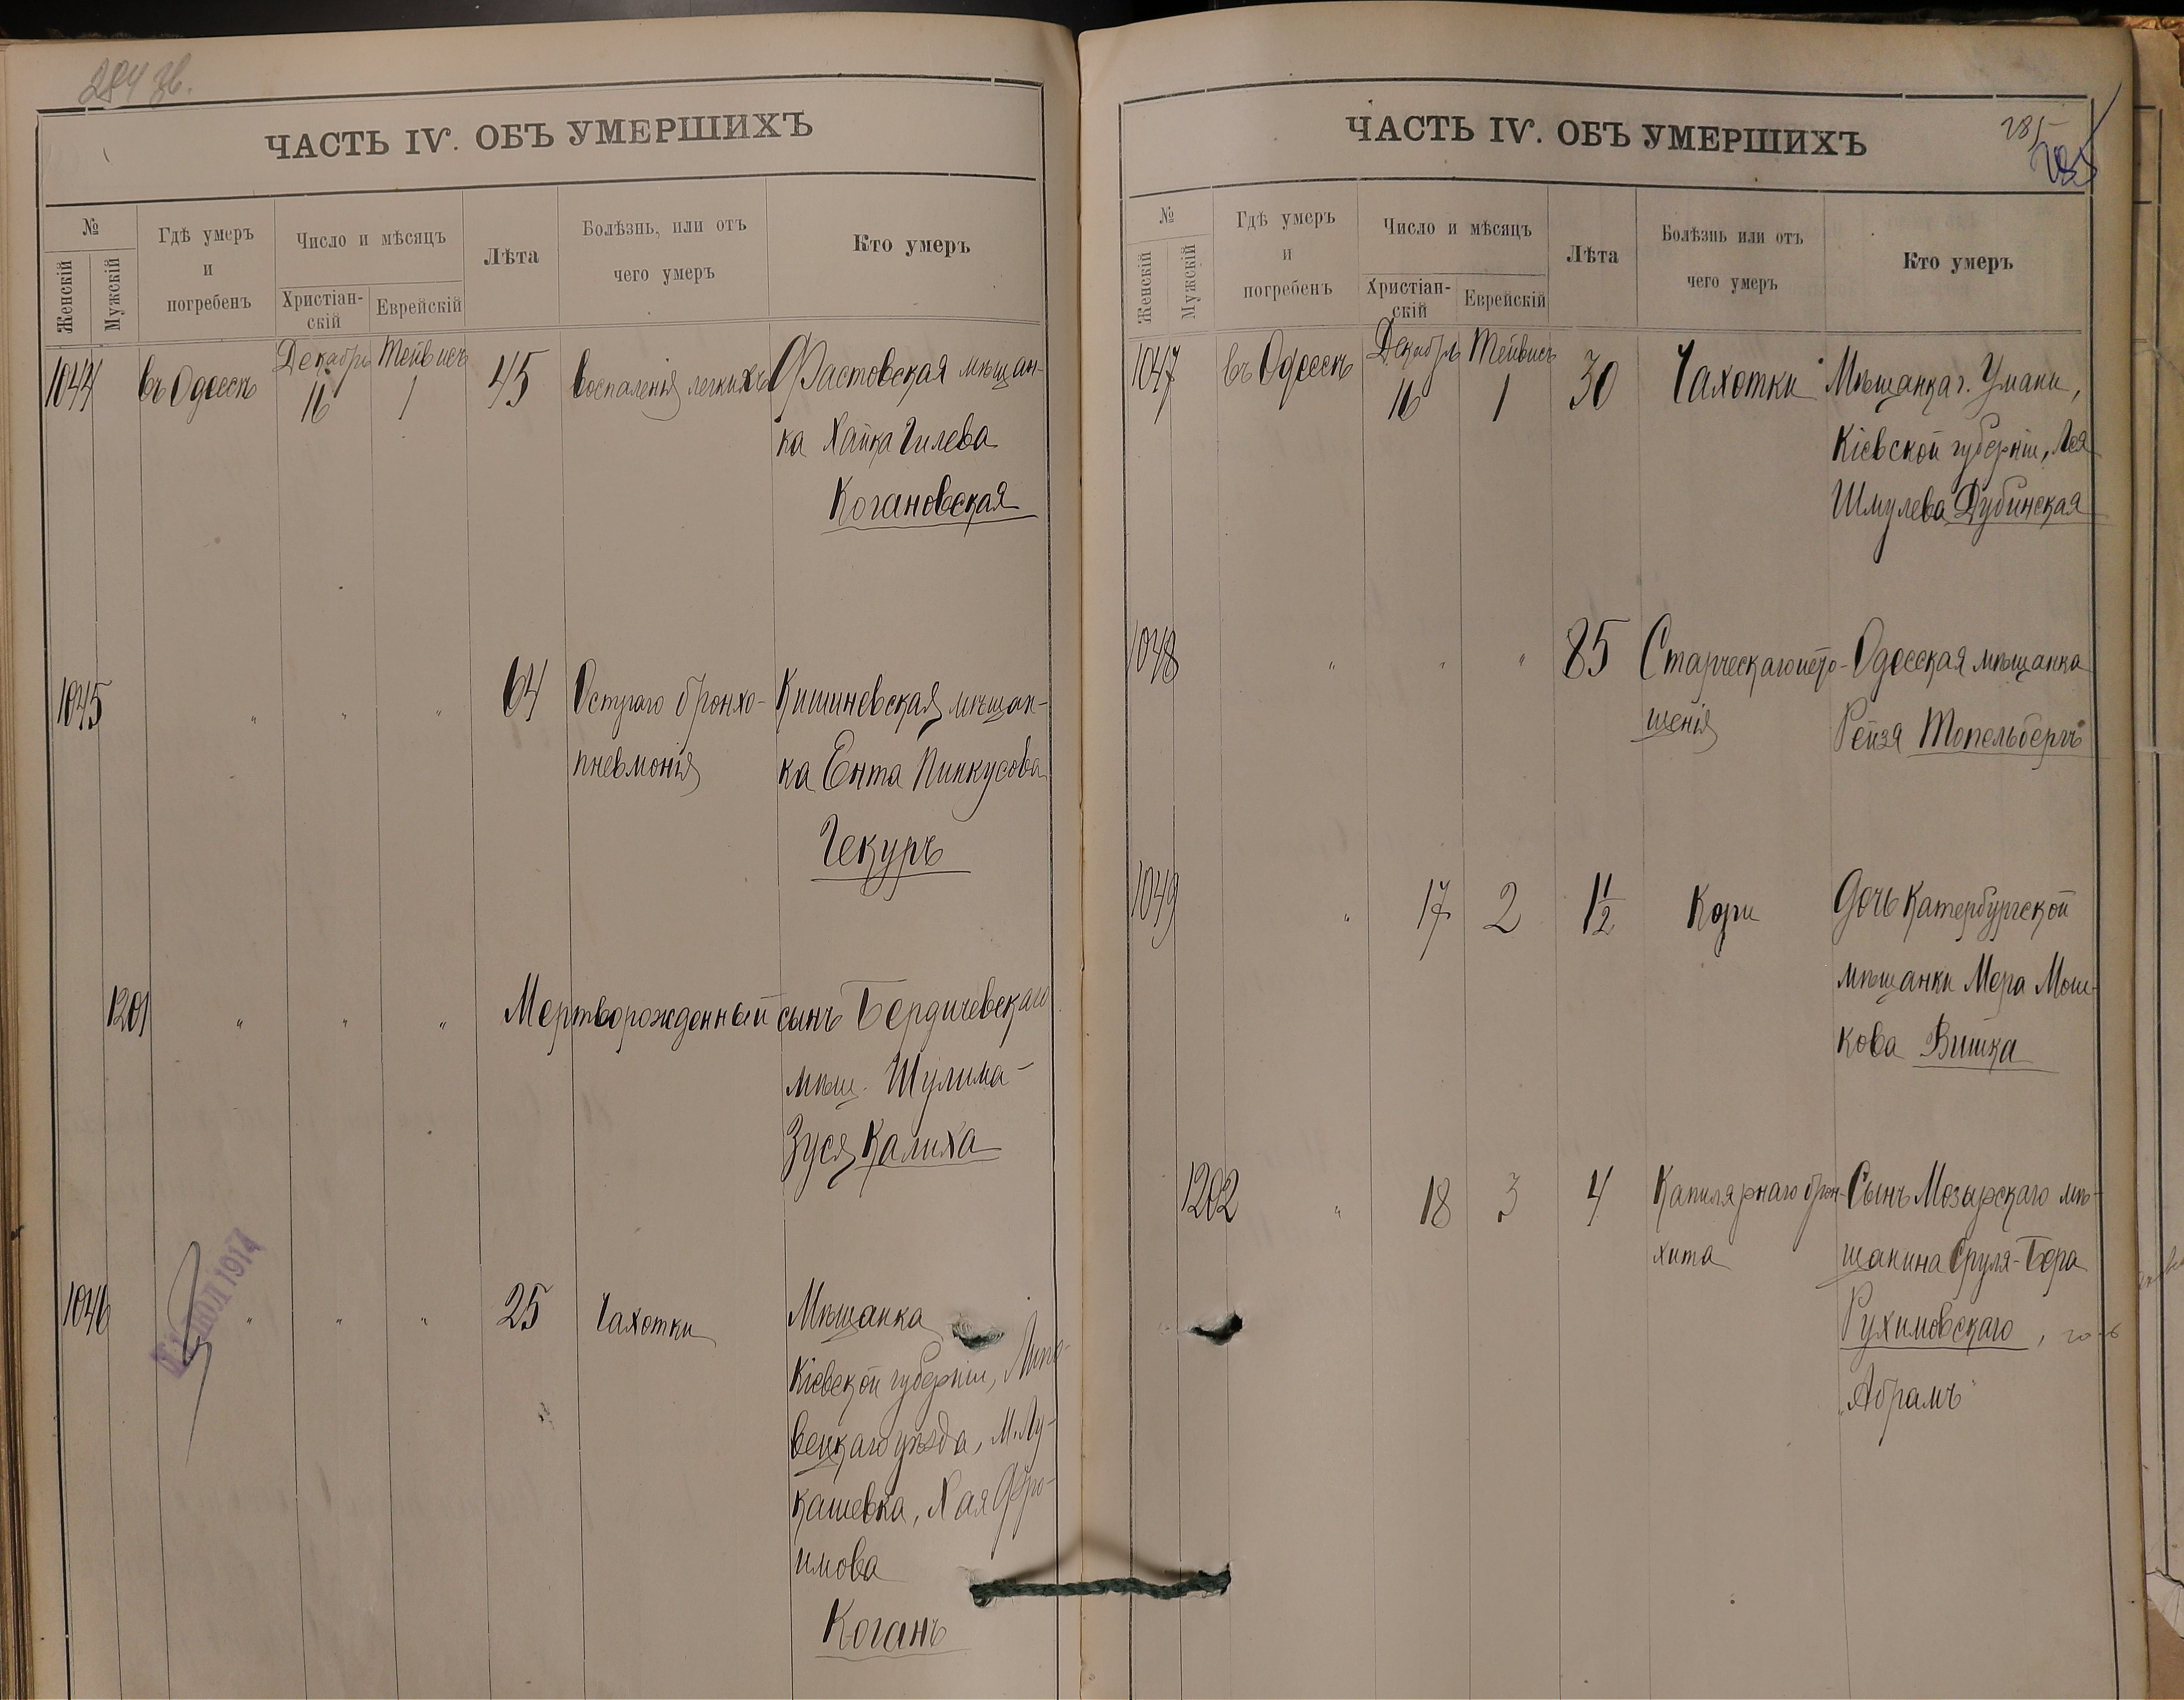 284 зв.
ЧАСТЬ IV. ОБЪ УМЕРШИХЪ
№
Женскій
Мужскій
Гдѣ умеръ
и
погребенъ
Число и мѣсяцъ
Христіан-
скій
Еврейскій
Лѣта
Болѣзнь, или отъ
чего умеръ
Кто умеръ
1044 въ Одессѣ Декабрь 16 Тейвисъ 1 45 Воспаленія легкихъ Фастовская мѣщан-
ка Хайка Гилева
Когановская
1045 " " " 64 Остраго бронхо- Кишиневская мѣщан-
пневмонія ка Ента Пинкусова
Чекуръ
1201 " " " Мертворожденный сынъ Бердичевскаго
мѣщ. Шулима-
Зуся Калиха
1046 " " " 25 Чахотки Мѣщанка
Кіевской губерніи, Липо-
вецкаго уѣзда, М. Лу-
кашевка, Хая Фро-
имова
Коганъ
ІЮЛ 1914
ЧАСТЬ IV. ОБЪ УМЕРШИХЪ
285
285
№
Женскій
Мужскій
Гдѣ умеръ
и
погребенъ
Число и мѣсяцъ
Христіан-
скій
Еврейскій
Лѣта
Болѣзнь или отъ
чего умеръ
Кто умеръ
1047 въ Одессѣ Декабрь 16 Тейвисъ 1 30 Чахотки Мѣщанка г. Умани,
Кіевской губерніи, Лея
Шмулева Дубинская
1048 " " " 85 Старческаго исто- Одесская мѣщанка
щенія Рейзя Топельбергъ
1049 " 17 2 1½ Кори Дочь Катербургской
мѣщанки Мера Мош-
кова Вишка
1202 " 18 3 4 Капилярнаго брон- Сынъ Мозырскаго мѣ-
хита щанина Сруля-Бера
Рухимовскаго,
"Абрамъ"